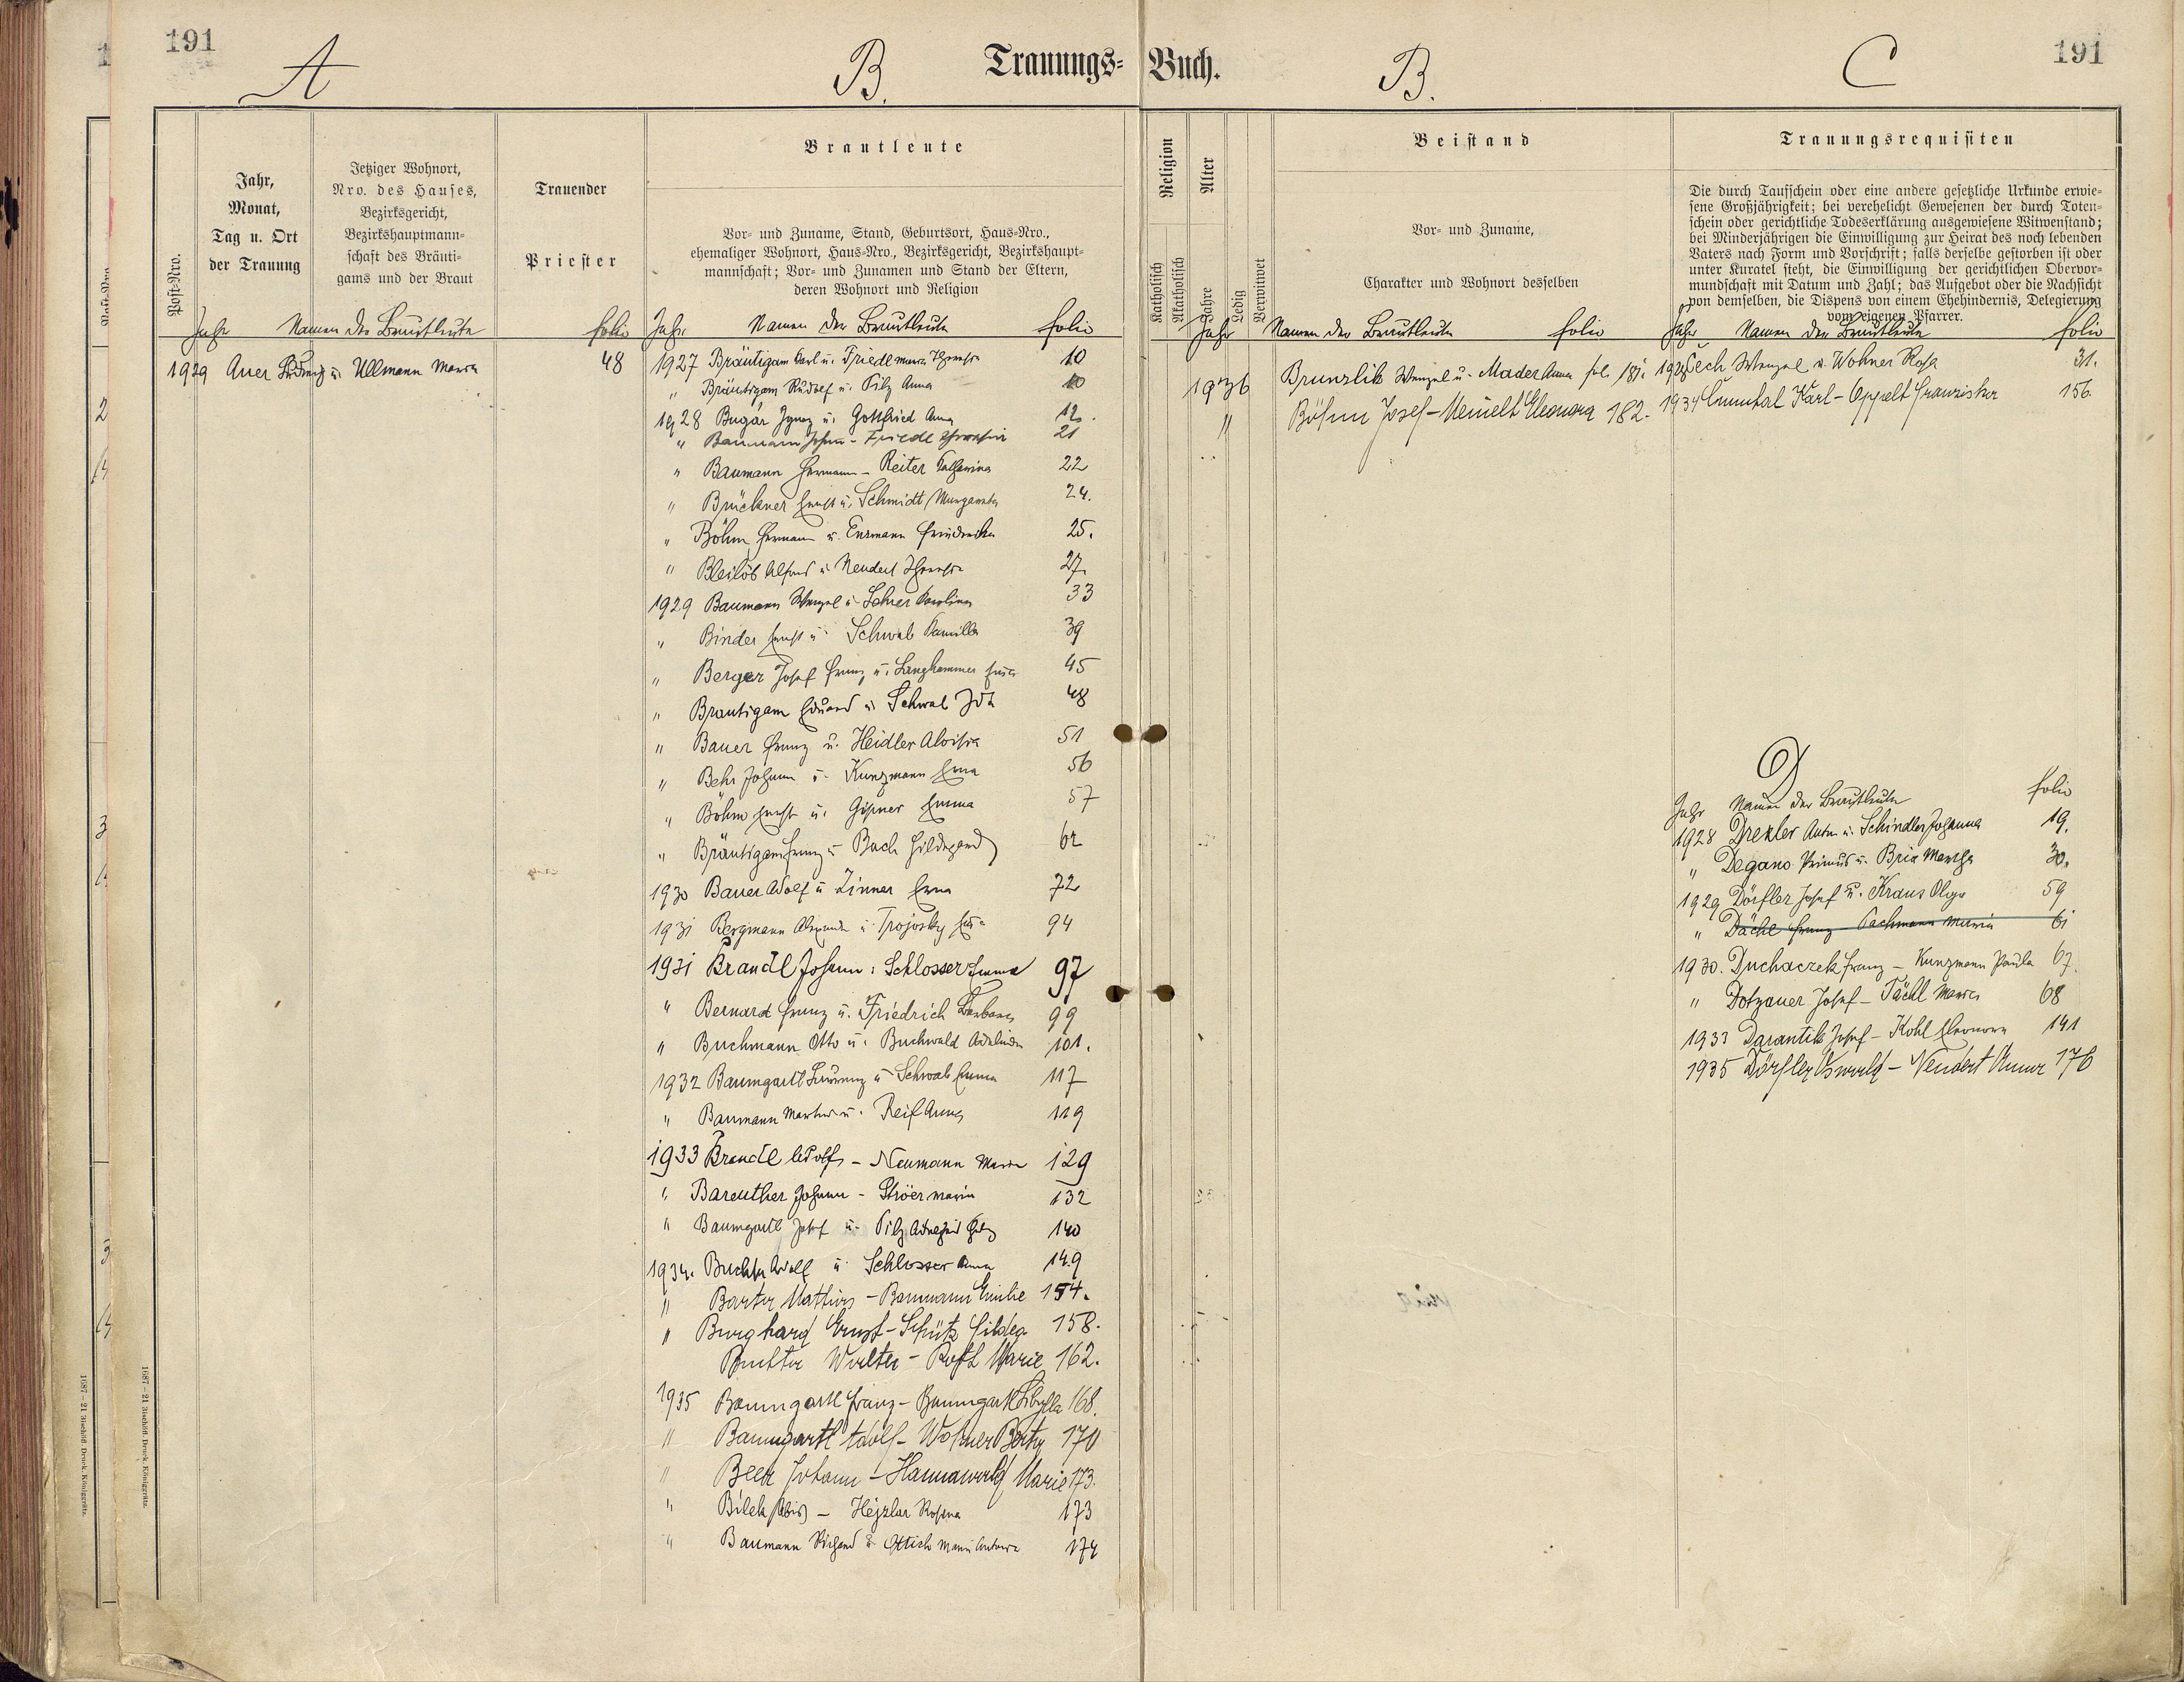 191
A
B.
Trauungs-Buch.
B.
C
191
Post-Nro.
Jahr,
Monat,
Tag u. Ort
der Trauung
Jetziger Wohnort,
Nro. des Hauses,
Bezirksgericht,
Bezirkshauptmann-
schaft des Bräuti-
gams und der Braut
Trauender
Priester
Brautleute
Vor- und Zuname, Stand, Geburtsort, Haus-Nro.,
ehemaliger Wohnort, Haus-Nro., Bezirksgericht, Bezirkshaupt-
mannschaft; Vor- und Zunamen und Stand der Eltern,
deren Wohnort und Religion
Religion
Katholisch
Akatholisch
Alter
Jahre
Ledig
Verwitwet
Beistand
Vor- und Zuname,
Charakter und Wohnort desselben
Trauungsrequisiten
Die durch Taufschein oder eine andere gesetzliche Urkunde erwie-
sene Großjährigkeit; bei verehelicht Gewesenen der durch Toten-
schein oder gerichtliche Todeserklärung ausgewiesene Witwenstand;
bei Minderjährigen die Einwilligung zur Heirat des noch lebenden
Vaters nach Form und Vorschrift; falls derselbe gestorben ist oder
unter Kuratel steht, die Einwilligung der gerichtlichen Obervor-
mundschaft mit Datum und Zahl; das Aufgebot oder die Nachsicht
von demselben, die Dispens von einem Ehehindernis, Delegierung
vom eigenen Pfarrer.
Jahr Namen der Brautleute folio
1929 Auer Ludwig u. Ullmann Maria 48
Jahr Namen der Brautleute folio
1927 Bräutigam Karl u. Friedl Maria Theresia 10
" Bräutigam Rudolf u. Pilz Anna 10
1928 Bugár Ignaz u. Gottfried Anna 12.
" Baumann Johann - Friedl Theresia 21
" Baumann Hermann - Reiter Katharina 22
" Brückner Ernst u. Schmidt Margareta 24.
" Böhm Hermann u. Enzmann Friedericka 25.
" Bleilöb Alfred u. Neudert Theresia 27.
1929 Baumann Wenzel u. Lehrer Karolina 33
" Binder Ernst u. Schwab Kamilla 39
" Berger Josef Franz u. Langhammer 45
" Bräutigam Eduard u. Schwab Ida 48
" Bauer Franz u. Heidler Aloisia 51
" Behr Johann u. Kunzmann Erna 56
" Böhm Ernst u. Gipner Emma 57
" Bräutigam Franz u. Bach Hildegard 62
1930 Bauer Adolf u. Zinner Erna 72
1931 Bergmann Alexander u. Trojosky 94
1931 Brandl Johann : Schlosser Emma 97
" Bernard Franz u. Friedrich Barbara 99
" Buchmann Otto u. Buchwald Adelinde 101.
1932 Baumgartl Laurenz u. Schwab Emma 117
" Baumann Martin u. Reif Anna 119
1933 Brandl Adolf - Neumann Maria 129
" Bareuther Johann - Ströer Maria 132
" Baumgartl Josef u. Pilz Adelheid 140
1934. Buchta Adolf u. Schlosser Anna 149
" Barta Mathias - Baumann Emilie 154.
" Burghard Ernst - Schütz Hilda 158.
Buchta Walter - Roth Marie 162.
1935 Baumgartl Franz - Baumgartl Sibylla 168.
" Baumgartl Adolf - Wohner Berta 170
" Beer Johann - Hannawald Marie 173.
" Bilek Alois - Hejzlar Rosina 173
" Baumann Richard u. Ottich Maria Antonia 174
Jahr Namen der Brautleute folio
1936 Brunzlik Wenzel u. Mader Anna fol. 181.
" Böhm Josef - Meinelt Eleonora 182.
Jahr Namen der Brautleute folio
1928 Čech Wenzel u. Wohner Rosa 31.
1934 Karl - Oppelt Franziska 156.
D
Jahr Namen der Brautleute folio
1928 Drexler Anton u. Schindler Johanna 19.
" Degano Primus u. Brix Martha 30.
1929 Dörfler Josef u. Kraus Olga 59
" Dächl Franz - Pachmann Maria 61
1930. Duchaczek Franz - Kunzmann Paula 67.
" Dotzauer Josef - Tächl Maria 68
1933 Darantik Josef - Kohl Eleonora 141
1935 Dörfler Oswald - Neudert Anna 176
1687 - 21 Bischöfl. Druck. Königgrätz.